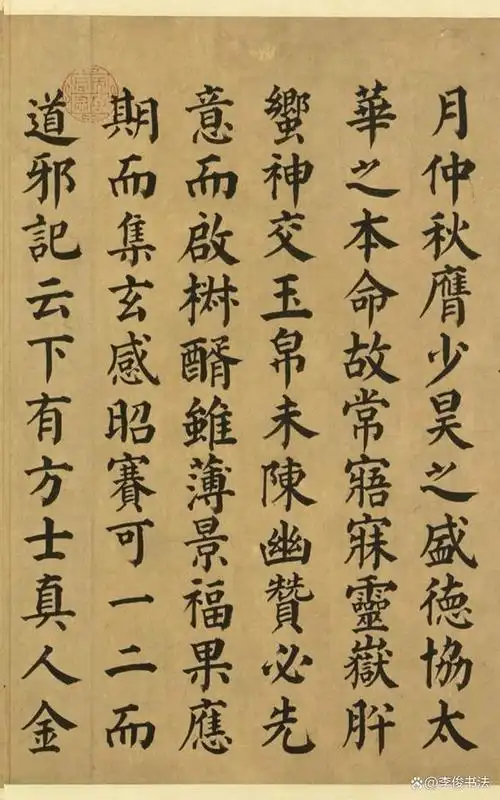 月仲秋膺少昊之盛德協太
華之本命故常寤寐靈嶽肸
蠁神交玉帛未陳幽贊必先
意而啟椒醑雖薄景福果應
期而集玄感昭賽可一二而
道邪記云下有方士真人金
@李俊书法